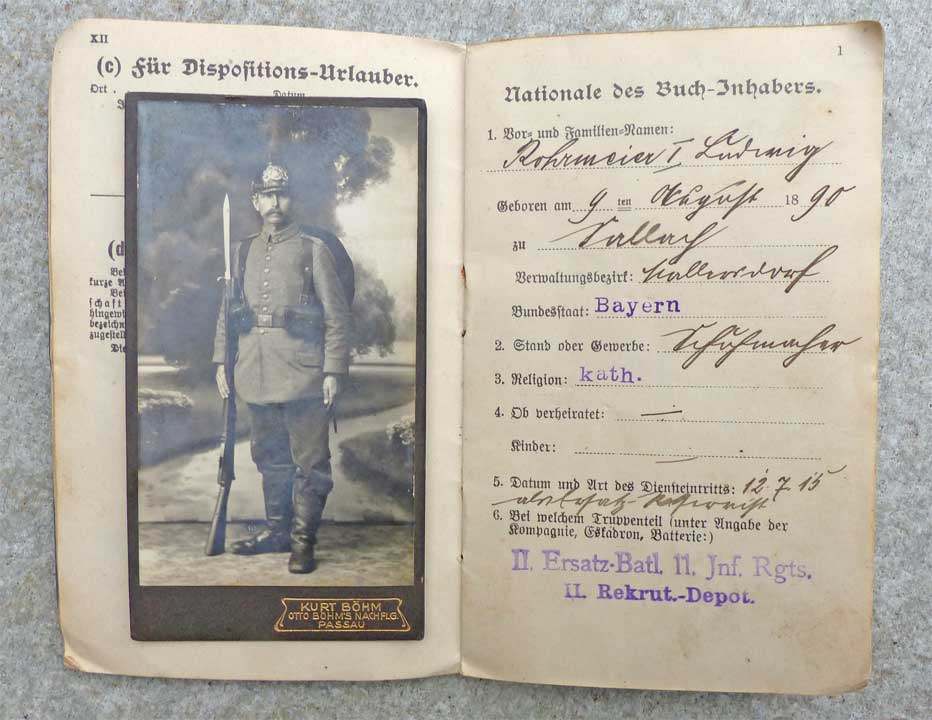 XII
(c) Für Dispositions-Urlauber.
Ort
Datum
(d
Bei
kurze A
Bei
schaft
hingew
bezeichn
zugestell
Die
KURT BÖHM
OTTO BÖHM'S NACHFLG.
PASSAU
1
Nationale des Buch-Inhabers.
1. Vor- und Familien-Namen:
Rohrmeier I, Ludwig
Geboren am 9 ten August 1890
zu Sallach
Verwaltungsbezirk: Mallersdorf
Bundesstaat: Bayern
2. Stand oder Gewerbe: Schuhmacher
3. Religion: kath.
4. Ob verheiratet: —
Kinder: —
5. Datum und Art des Diensteintritts: 12.7.15
als Ersatz-Rekrut
6. Bei welchem Truppenteil (unter Angabe der
Kompagnie, Eskadron, Batterie:)
II. Ersatz-Batl. 11. Inf. Rgts.
II. Rekrut.-Depot.